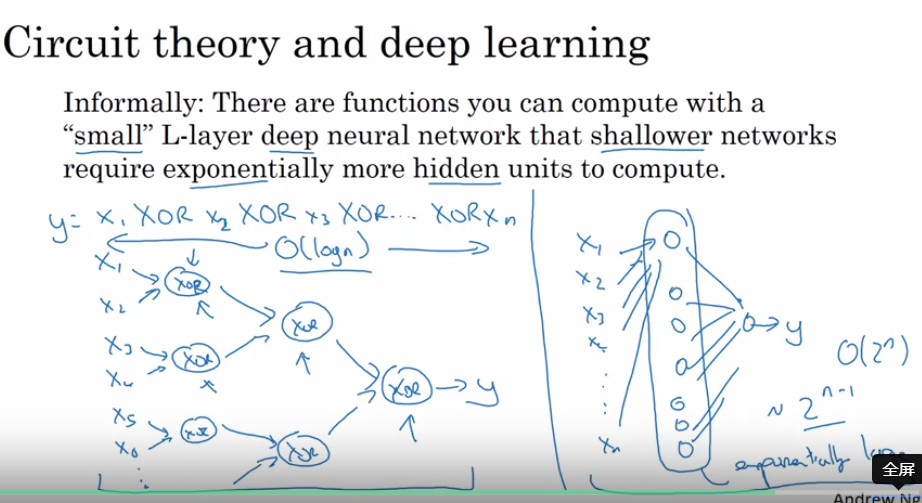 Circuit theory and deep learning
Informally: There are functions you can compute with a
“small” L-layer deep neural network that shallower networks
require exponentially more hidden units to compute.
y= x₁ XOR x₂ XOR x₃ XOR.... XOR xₙ
O(log n)
x₁
XOR
x₂
XOR
x₃
XOR
x₄
XOR
y
x₅
XOR
x₆
XOR
x₁
x₂
x₃
x₄
xₙ
y
O(2ⁿ)
~ 2ⁿ⁻¹
exponentially
全屏
Andrew Ng